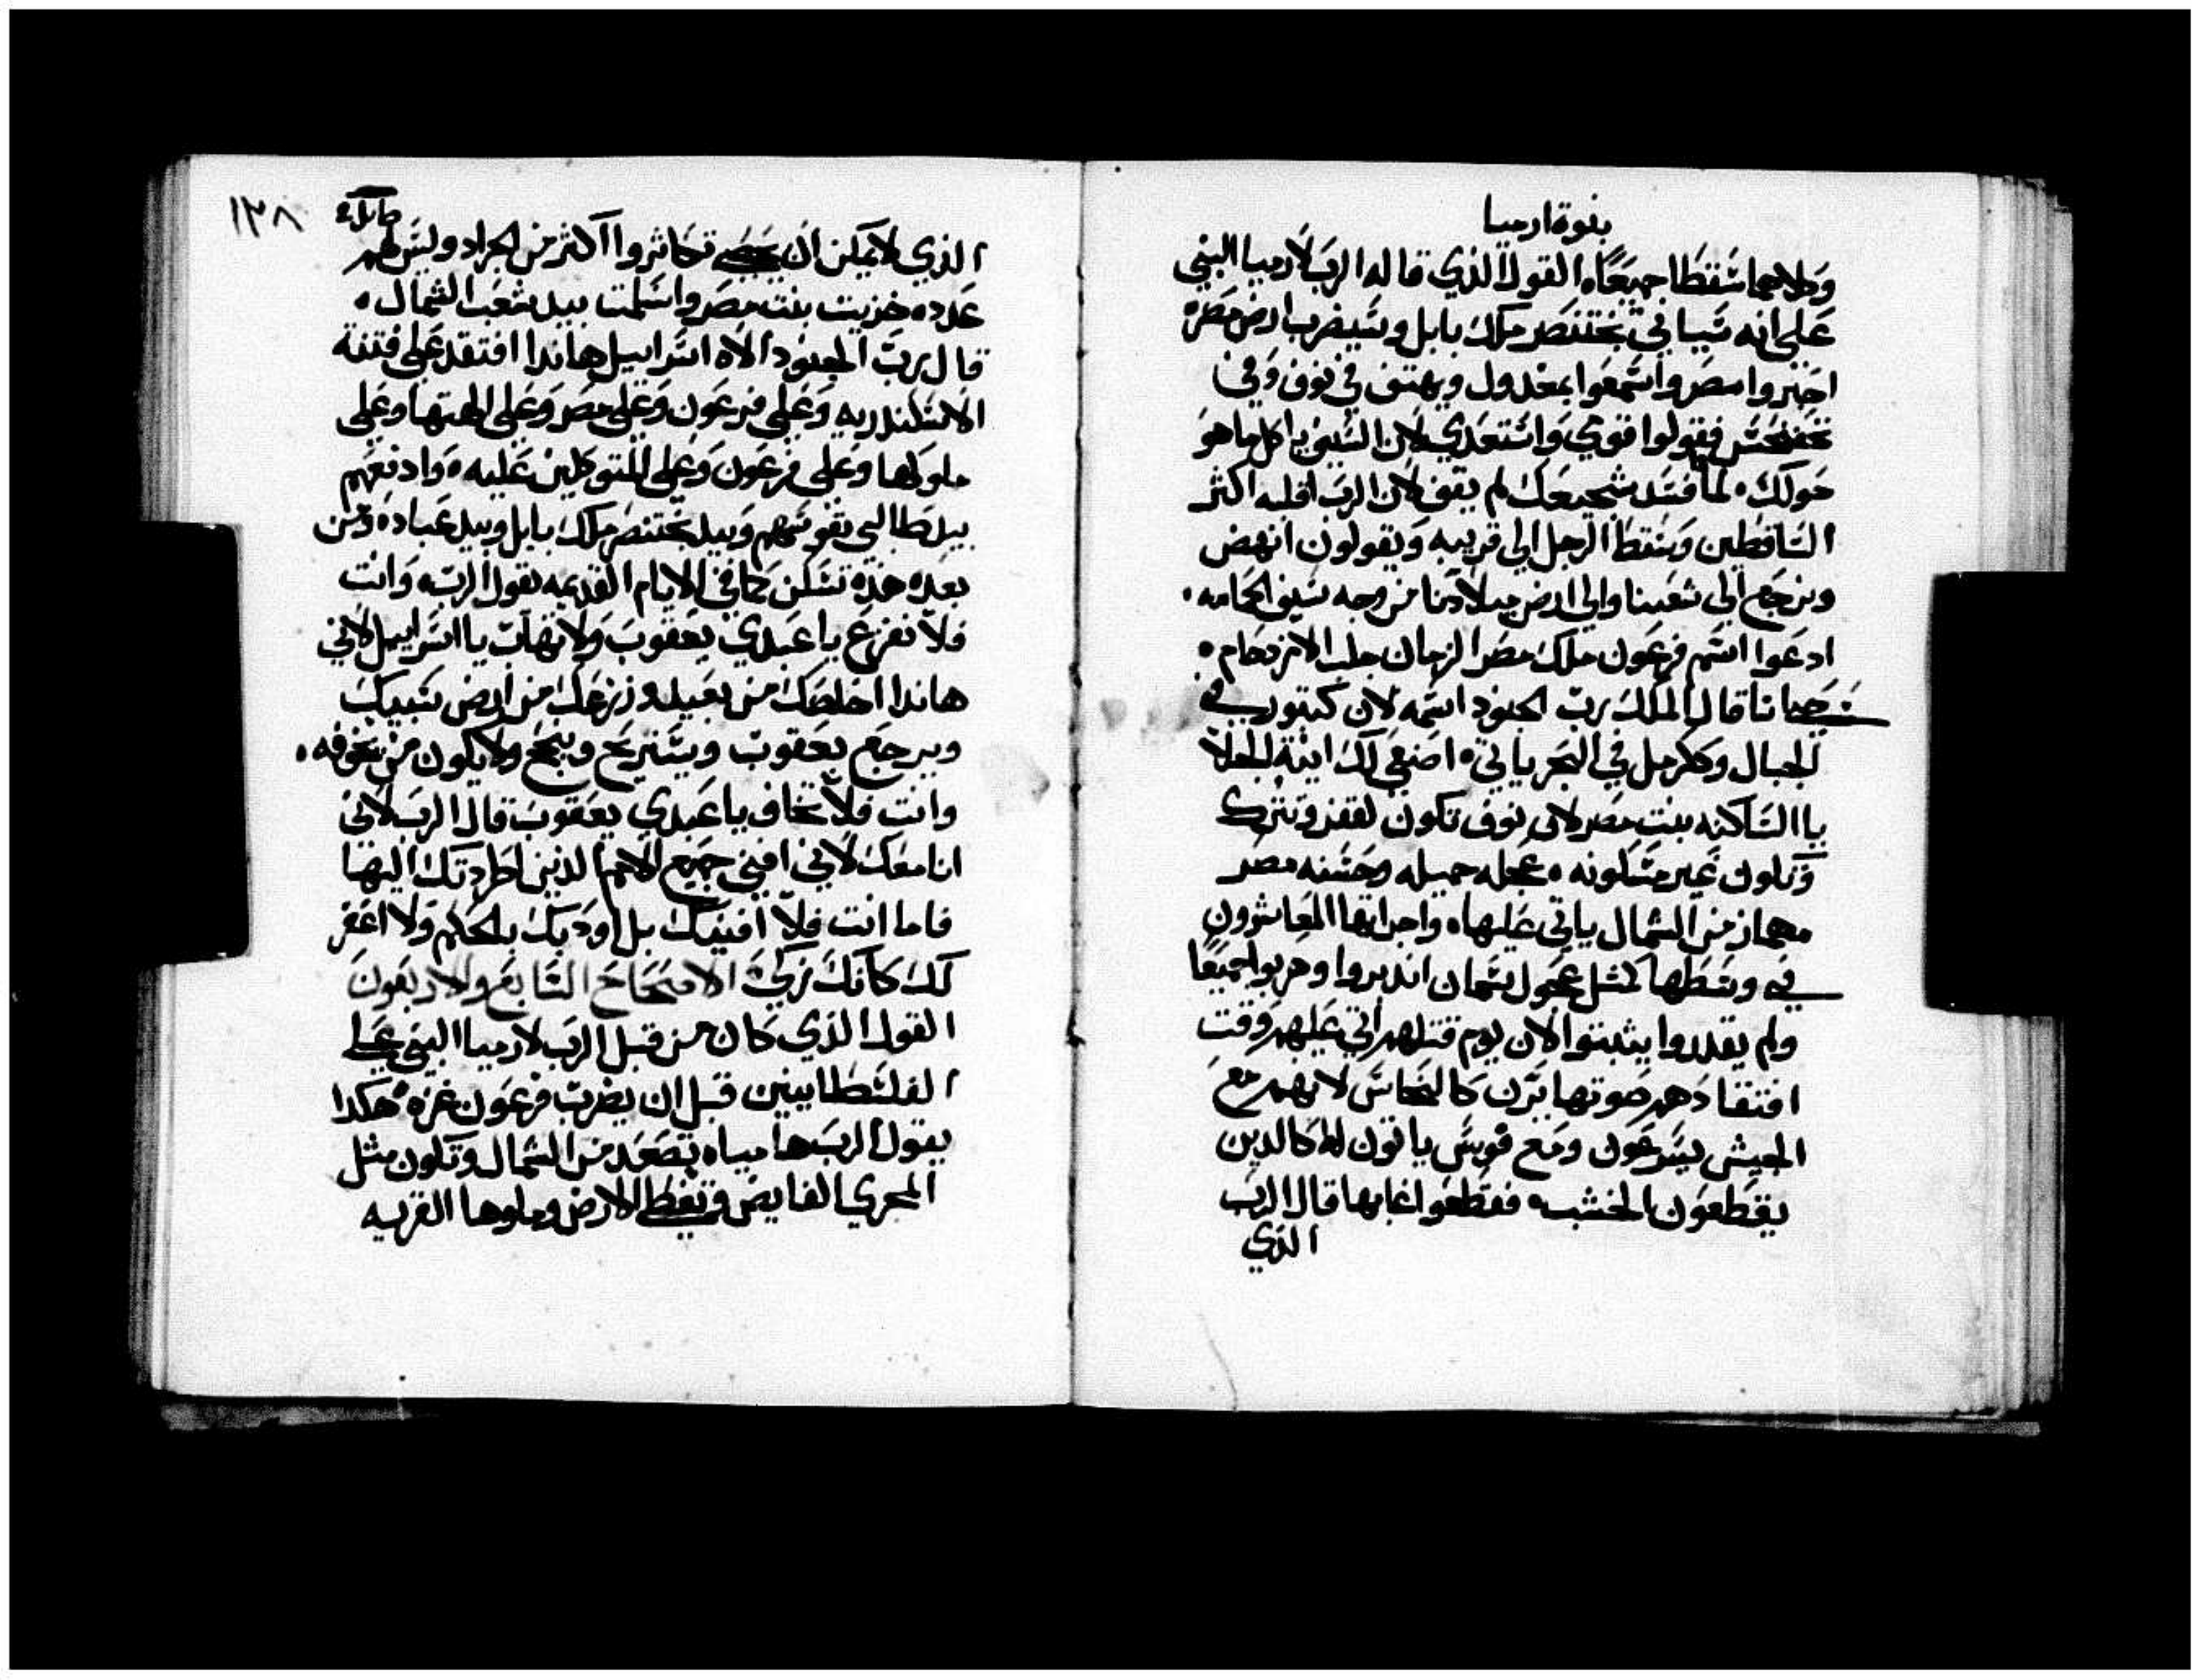 بنوة ارميا
وكلاهما سقطا جميعًا ه القول الذي قاله الرب لارميا النبي
على انه سياتي بختنصر ملك بابل وسيضرب ارض مصر ه
اخبروا مصر واسمعوا بمغدول ويهتف في نوف وفي
تحفنحس فقولوا قومي واستعدي لان السيف ياكل ما هو
حولك ه لما فسد شجيعك لم يقف لان الرب اقلبه اكثر
الساقطين وسقط الرجل الي قريبه ويقولون انهض
ونرجع الي شعبنا والي ارض ميلادنا من وجه سيف الحمامه ه
ادعوا اسم فرعون ملك مصر الزمان جلب الازدحام ه
حيا انا قال الملك رب الجنود اسمه لان كتبور في
الجبال وكرمل في البحر ياتي ه اصنعي لك انية الجلا
يا الساكنه بنت مصر لان نوف تكون لقفر وتترك
وتكون غير مسكونه ه عجله جميله وحسنه مصر
مهماز من الشمال ياتي عليها ه واجراتها المعاشرون
في وسطها كمثل عجول سمان اندبروا وهربوا جميعًا
ولم يقدروا يثبتوا لان يوم قتلهم اتي عليهم وقت
افتقادهم صوتها يرن كالنحاس لانهم مع
الجيش يسرعون ومع قوس ياتون لها كالدين
يقطعون الخشب ه فقطعوا غابها قال الرب
الذي
١٣٨
الذي لا يمكن ان يحصي تكاثروا اكثر من الجراد وليس لهم
عدد ه خزيت بنت مصر واسلمت بيد شعب الشمال ه
قال رب الجنود الاه اسراييل هاندا افتقد علي فتنة
الاسكندريه وعلي فرعون وعلي مصر وعلي الهتها وعلي
ملوكها وعلي فرعون وعلي المتوكلين عليه ه وادفعهم
بيد طالبي نفوسهم وبيد بختنصر ملك بابل وبيد عباده ومن
بعد هذه تسكن كما في الايام القديمه يقول الرب ه وانت
فلا تفزع يا عبدي يعقوب ولا تهاب يا اسراييل لاني
هاندا اخلصك من بعيد وزرعك من ارض سبيك
ويرجع يعقوب ويستريح وينجح ولا يكون من يخوفه ه
وانت فلا تخاف يا عبدي يعقوب قال الرب لاني
انا معك لاني افني جميع الامم الذين اطردتك اليها
فاما انت فلا افنيك بل اودبك بالحكم ولا اغفر
لك كانك زكي الاصحاح السابع والاربعون
القول الذي كان من قبل الرب لارميا النبي علي
الفلسطانيين قبل ان يضرب فرعون غزه ه هكدا
يقول الرب ها مياه تصعد من الشمال وتكون مثل
المجري الفايض وتغطي الارض وملوها القريه